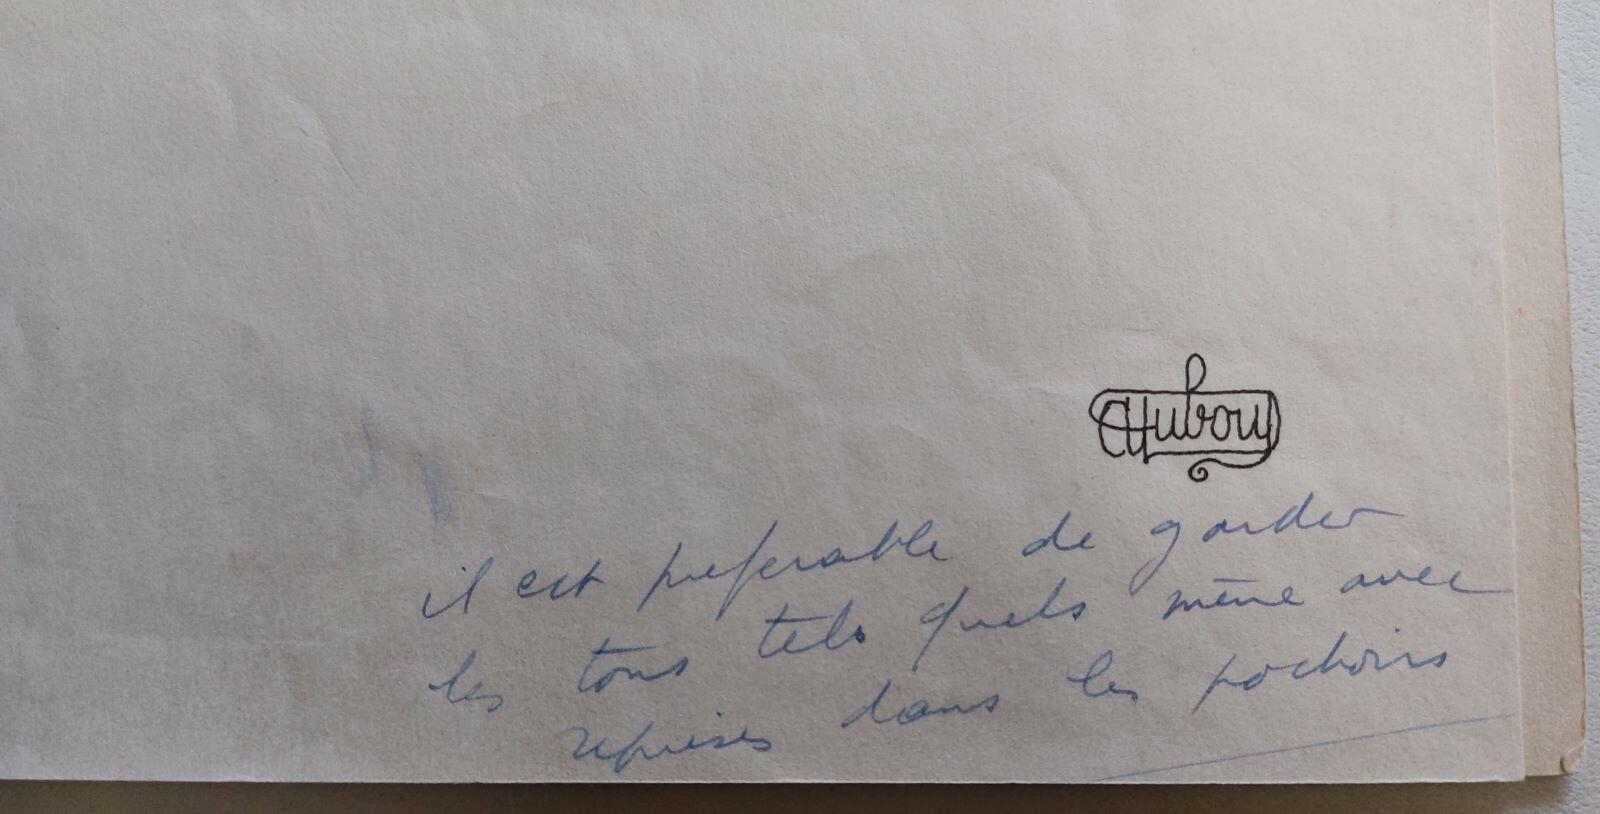 CHubouy
il est preferable de garder
les tons tels quels même avec
reprises dans les pochoirs